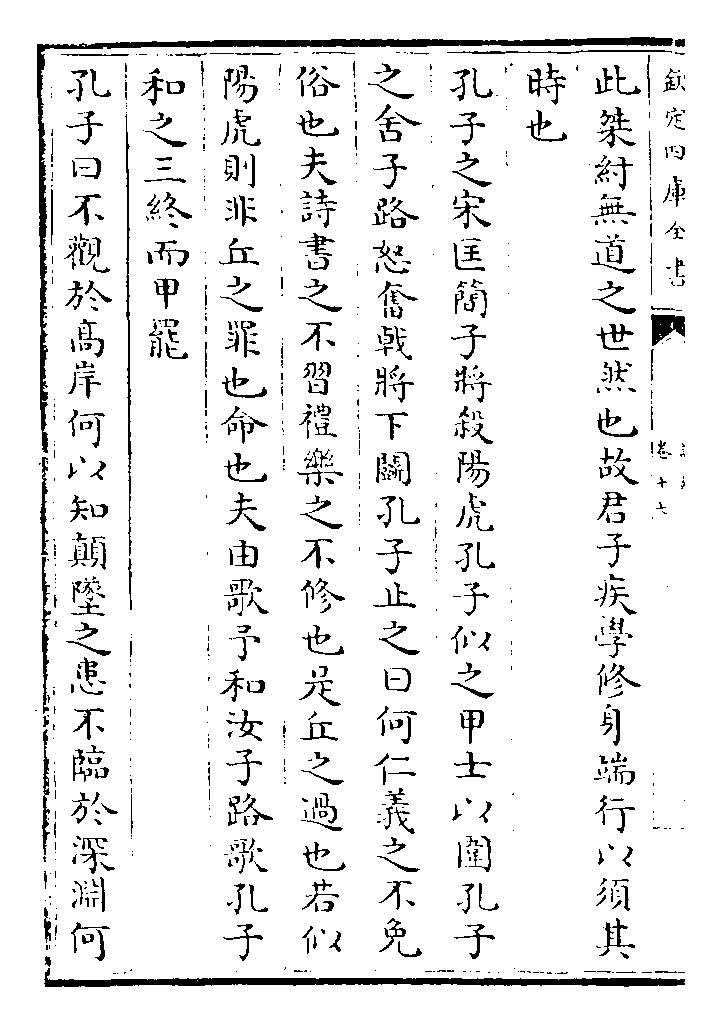 欽定四庫全書
卷十七
此桀紂無道之世然也故君子疾學修身端行以須其
時也
孔子之宋匡簡子將殺陽虎孔子似之甲士以圍孔子
之舍子路怒奮戟將下鬭孔子止之曰何仁義之不免
俗也夫詩書之不習禮樂之不修也是丘之過也若似
陽虎則非丘之罪也命也夫由歌予和汝子路歌孔子
和之三終而甲罷
孔子曰不觀於髙岸何以知顛墜之患不臨於深淵何